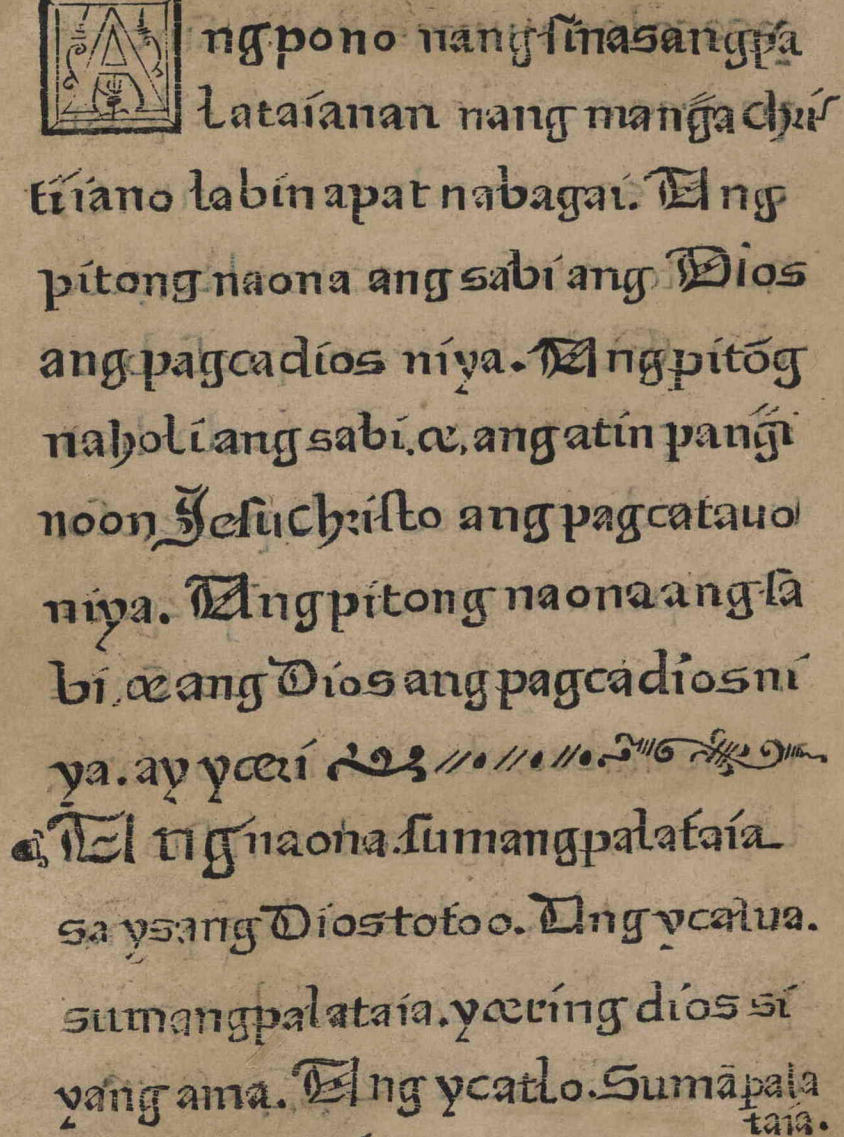 Ang pono nang ſinasangpa
lataíanan nang mang̃a chriſ
tiíano labín apat na bagaí. Ang
pítong naona ang sabí ang Díos
ang pagcadíos níya. Ang pitõg
naholí ang sabí, æ, ang atín pang̃i
noon Jeſuchríſto ang pagcatauo
níya. Ang pítong naona ang ſa
bí, æ ang Díos ang pagcadíos ní
ya. ay yærí
Ang naona. ſumangpalataía
sa ysang Díos totoo. Ang ycalua.
sumangpalataía. yæríng díos sí
yang ama. Ang ycatlo. Sumãpala
taía.